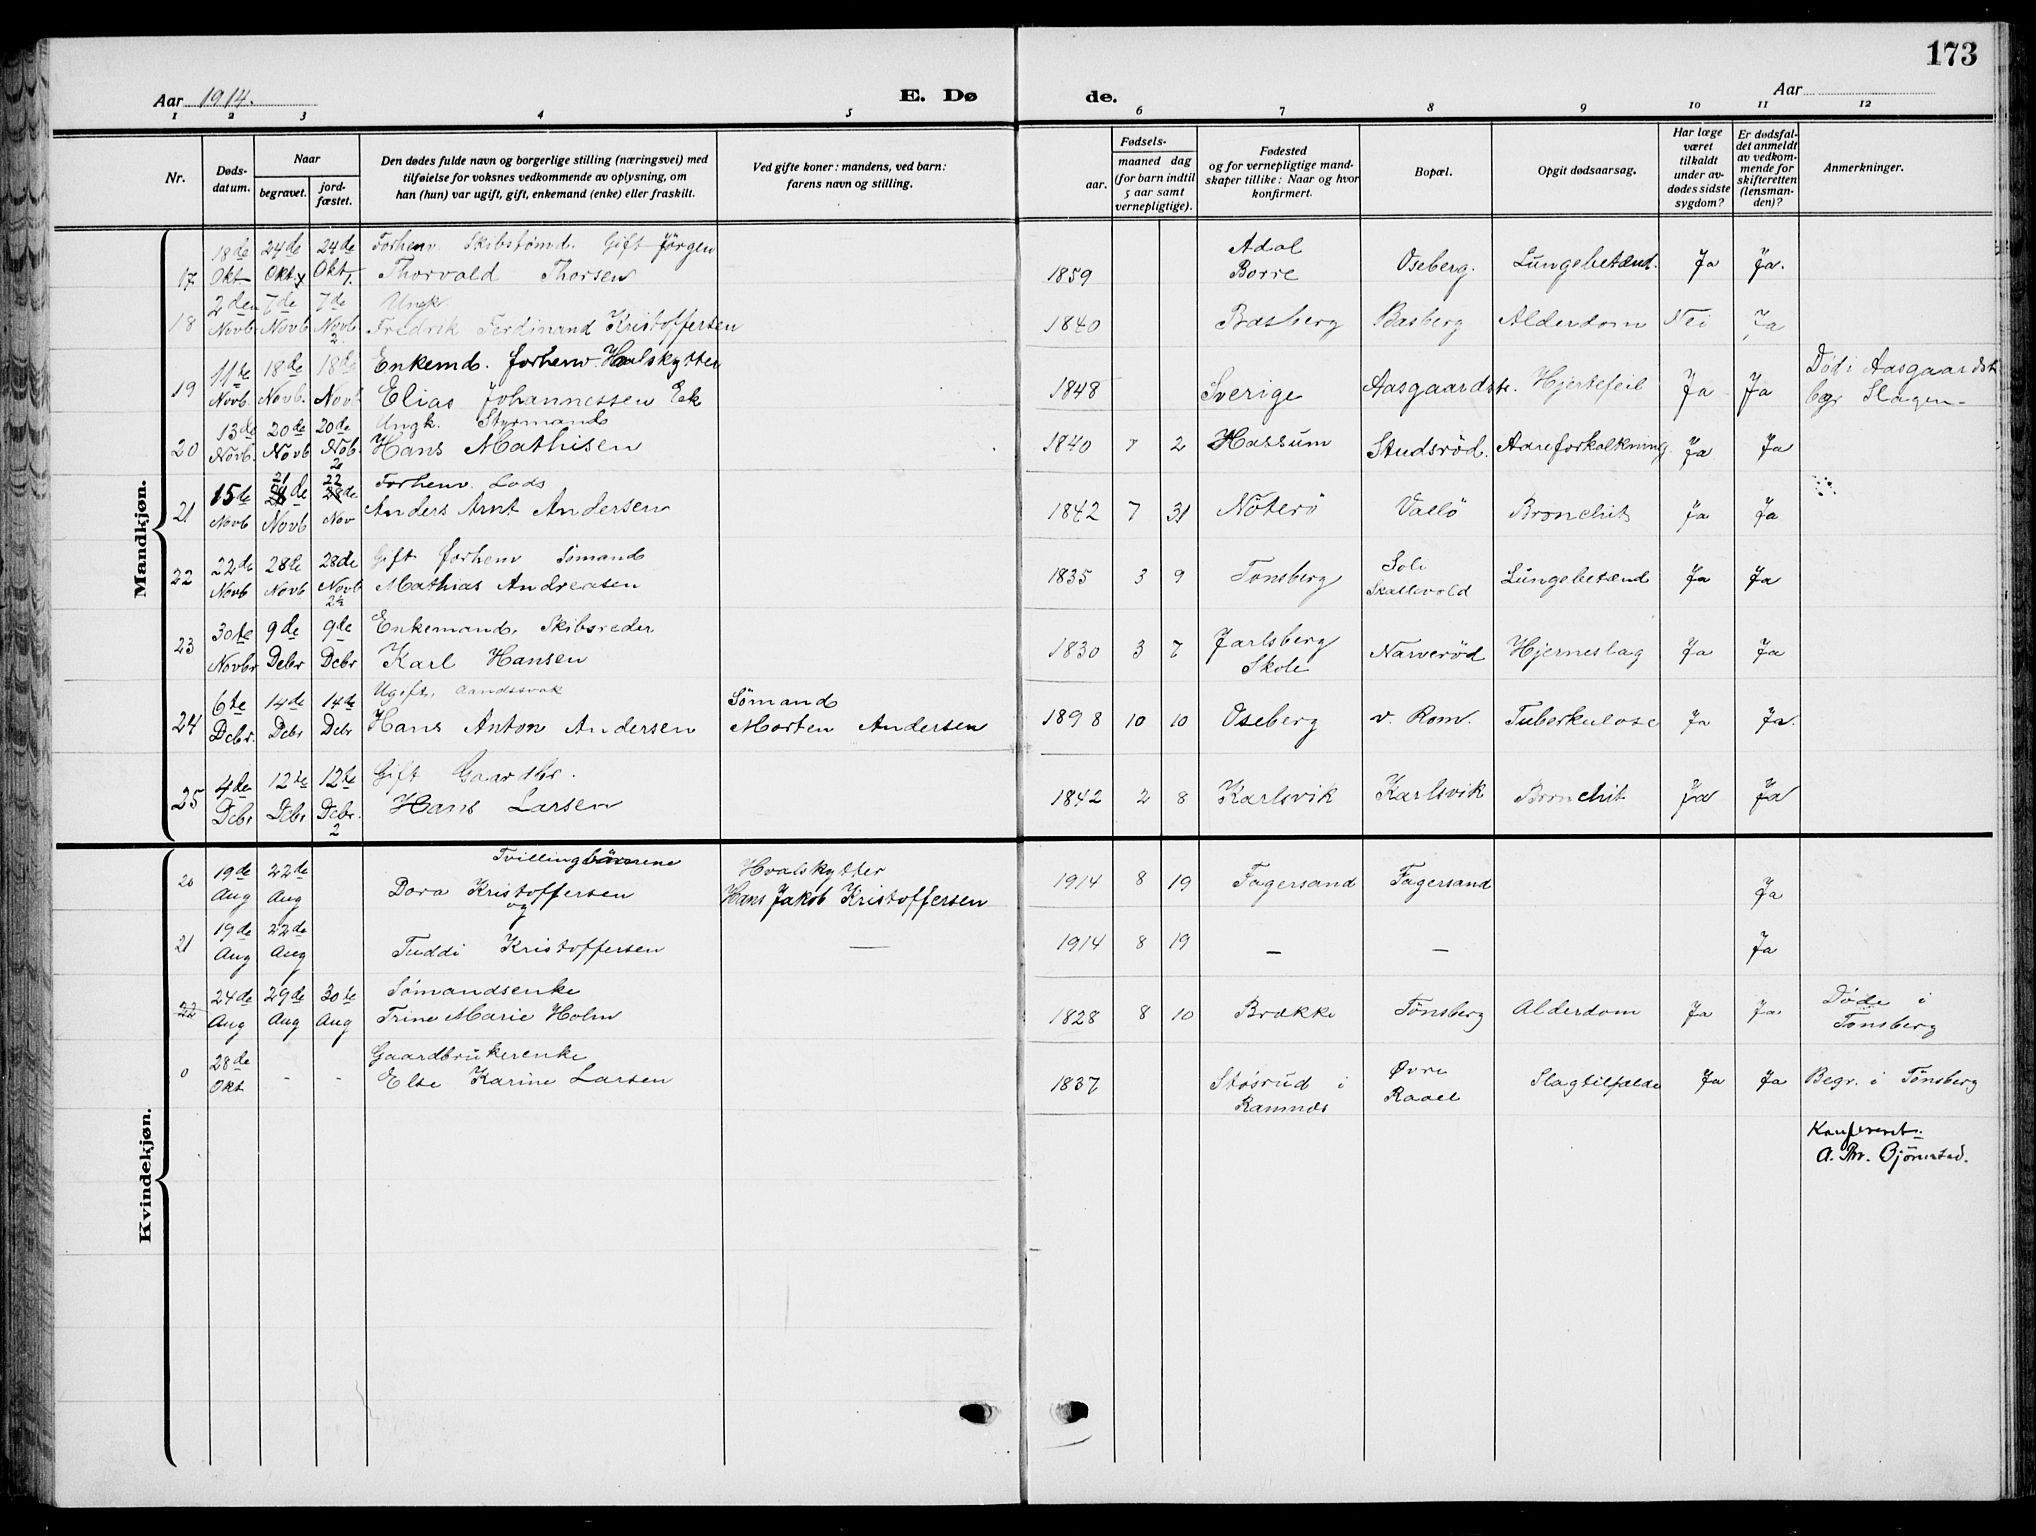 173
Aar 1914.
E. Døde.
Aar
1 2 3 4 5 6 7 8 9 10 11 12
Nr.
Døds-
datum.
Naar
begravet.
jord-
fæstet.
Den dødes fulde navn og borgerlige stilling (næringsvei) med
tilføielse for voksnes vedkommende av oplysning, om
han (hun) var ugift, gift, enkemand (enke) eller fraskilt.
Ved gifte koner: mandens, ved barn:
farens navn og stilling.
Fødsels-
aar.
maaned dag
(for barn indtil
5 aar samt
vernepligtige).
Fødested
og for vernepligtige mand-
skaper tillike: Naar og hvor
konfirmert.
Bopæl.
Opgit dødsaarsag.
Har læge
været
tilkaldt
under av-
dødes sidste
sygdom?
Er dødsfal-
det anmeldt
av vedkom-
mende for
skifteretten
(lensman-
den)?
Anmerkninger.
Mandkjøn.
18de 24de 24de Forhenv. Skibstømd. Gift Jörgen Adal
17 Okt Okt Okt. Thorvald Thorsen 1859 Borre Oseberg. Lungebetænd. Ja Ja.
2den 7de 7de Ungk.
18 Novb Novb Novb Fredrik Ferdinand Kristoffersen 1840 Basberg Basberg Alderdom Nei Ja
2
11te 18de 18de Enkemd. forhenv. Hvalskytter Död i Aasgaardst
19 Novb. Novb. Novb Elias Johannessen Eek 1848 Sverige Aasgaardstr. Hjertefeil Ja Ja begr Slagen
13de 20de 20de Ungk. Styrmand
20 Novb. Novb Nob. Hans Mathisen 1840 7 2 Hassum Studsröd. Aareforkalkning Ja Ja
2
21 22
15de 28de Forhenv. Lods
21 Novb Novb Nov Anders Arnt Andersen 1842 7 31 Nöterö Vallö Bronchit Ja Ja
22de 28de 28de Gift forhenv Sömand Soli
22 Novb Novb Novb Mathias Andreasen 1835 3 9 Tönsberg Skallevold Lungebetænd Ja Ja
2½
30te 9de 9de Enkemand. Skibsreder Jarlsberg
23 Novbr Debr Debr Karl Hansen 1830 3 7 Skole Narveröd Hjerneslag Ja Ja
6te 14de 14de Ugift, aandssvak Sömand
24 Debr. Debr Debr Hans Anton Andersen Morten Andersen 1898 10 10 Oseberg v. Rom. Tuberkulose Ja Ja.
4de 12te 12te Gift Gaardbr.
25 Debr Debr Debr. Hans Larsen 1842 2 8 Karlsvik Karlsvik Bronchit Ja Ja
2
Kvindekjøn.
19de 22de Tvillingbörnene Hvalskytter
20 Aug Aug Dora Kristoffersen Hans Jakob Kristoffersen 1914 8 19 Fagersand Fagersand Ja
og
19de 22de
21 Aug Aug Tuddi Kristoffersen — 1914 8 19 — — Ja
24de 29de 30te Sömandsenke Döde i
22 Aug Aug Aug Trine Marie Holm 1828 8 10 Brække Tönsberg Alderdom Ja Ja Tönsberg
28de Gaardbrukerenke Övre
0 Okt - - Else Karine Larsen 1837 Stösrud i Raael Slagtilfælde Ja Ja Begr. i Tönsberg
Ramnes
Konfereret:
A. Thr. Björnstad.